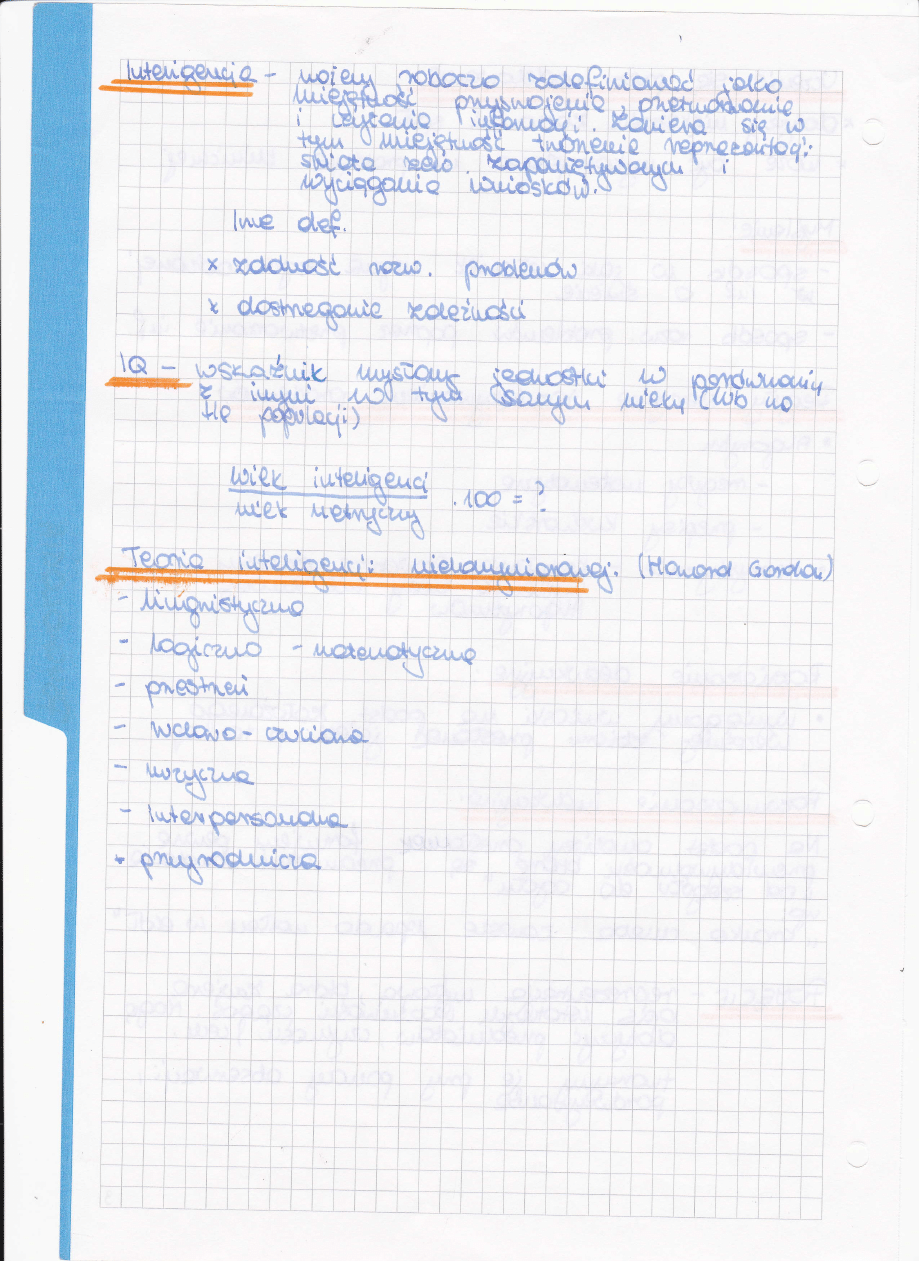 Inteligencja - możemy roboczo zdefiniować jako
umiejętność przyswojenia, przetwarzania
i użycia informacji. Zawiera się w
tym umiejętność tworzenia reprezentacji
świata zew. zapamiętywanym i
wyciągania wniosków.
Inne def.
x zdolność rozw. problemów
x dostrzeganie zależności
IQ - wskaźnik jednostki w porównaniu
z innymi w tym samym wieku (lub na
tle populacji)
wiek inteligencji
wiek metryczny · 100 = ?
Teoria inteligencji: (Howard Gardner)
- lingwistyczna
- logiczno - matematyczna
- przestrzeń
- ruchowa
- muzyczna
- interpersonalna
- przyrodnicza